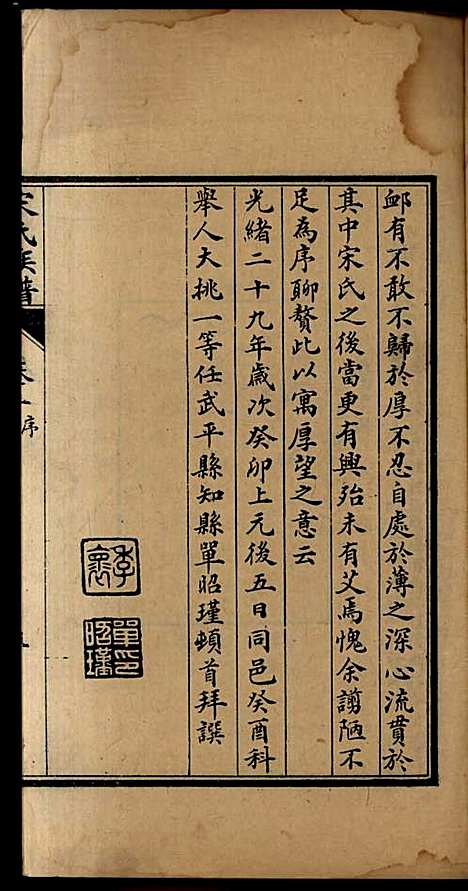 邮有不敢不歸於厚不忍自處於薄之深心流貫於
其中宋氏之後當更有興殆未有艾焉愧余謭陋不
足為序聊贅此以寓厚望之意云
光緒二十九年歲次癸卯上元後五日同邑癸酉科
舉人大挑一等任武平縣知縣單昭瑾頓首拜譔
季襄
單印昭瑾
宋氏族譜
卷一序